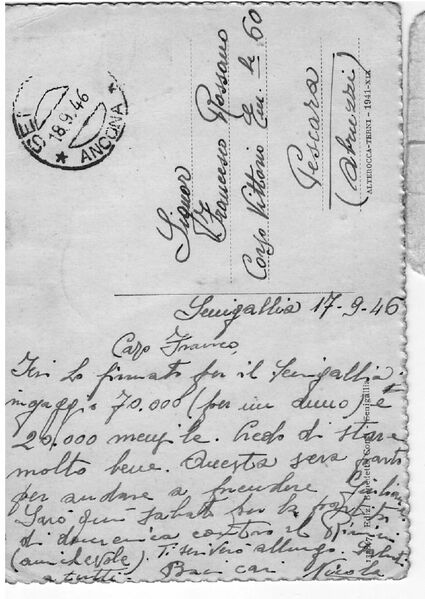 18.9.46
* ANCONA *
Signor
Francesco Rossano
Corso Vittorio Em. le 60
Pescara
(Abruzzi)
ALTEROCCA-TERNI - 1941-XIX
Senigallia 17-9-46
Caro Franco,
Ieri ho firmato per il Senigallia.
ingaggio 70.000 (per un anno) e
20.000 mensile. Credo di stare
molto bene. Questa sera parto
per andare a prendere Giuliana
Sarò qui sabato per la
di domenica contro il Rimini
(amichevole). Ti scriverò a lungo. Saluti
a tutti. Baci cari Nicola
Ediz. Benedetta Senigallia